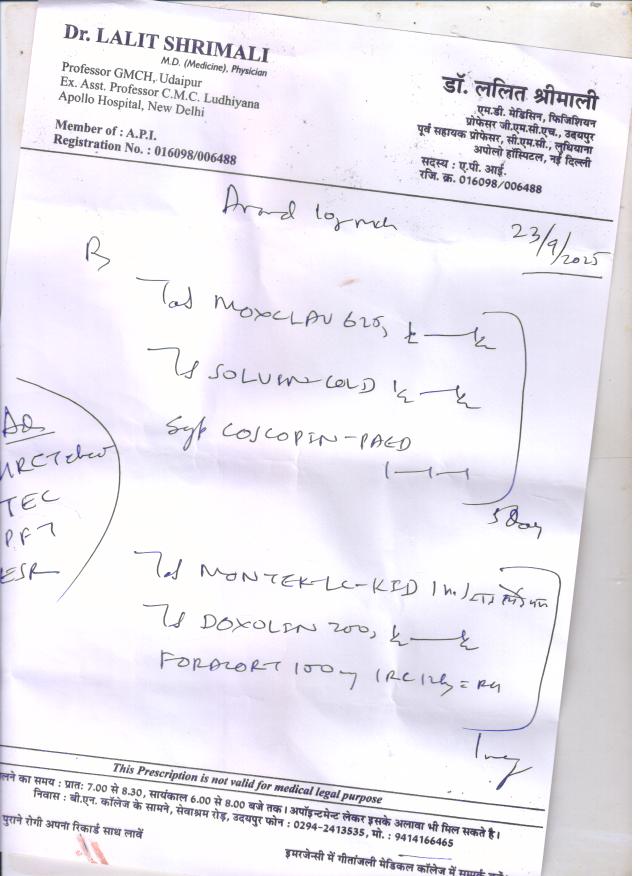 Dr. LALIT SHRIMALI
M.D. (Medicine), Physician
Professor GMCH, Udaipur
Ex. Asst. Professor C.M.C. Ludhiyana
Apollo Hospital, New Delhi
Member of : A.P.I.
Registration No. : 016098/006488
डॉ. ललित श्रीमाली
एम.डी. मेडिसिन, फिजिशियन
प्रोफेसर जी.एम.सी.एच., उदयपुर
पूर्व सहायक प्रोफेसर, सी.एम.सी., लुधियाना
अपोलो हॉस्पिटल, नई दिल्ली
सदस्य : ए.पी. आई.
रजि. क्र. 016098/006488
23/9/2025
Tab MOXCLAV 625, ½ — ½
Tab SOLVIN-COLD ½ — ½
Syp COSCOPIN-PAED
1—1—1
5 Day
Adv
HRCT chest
TEC
PFT
ESR
Tab MONTEK-LC-KID
Tab DOXOLIN 200, ½ — ½
FORACORT 100
This Prescription is not valid for medical legal purpose
लने का समय : प्रात: 7.00 से 8.30, सायंकाल 6.00 से 8.00 बजे तक। अपॉइन्टमेन्ट लेकर इसके अलावा भी मिल सकते है।
निवास : बी.एन. कॉलेज के सामने, सेवाश्रम रोड़, उदयपुर फोन : 0294-2413535, मो. : 9414166465
पुराने रोगी अपना रिकार्ड साथ लावें
इमरजेन्सी में गीतांजली मेडिकल कॉलेज में सम्पर्क करें